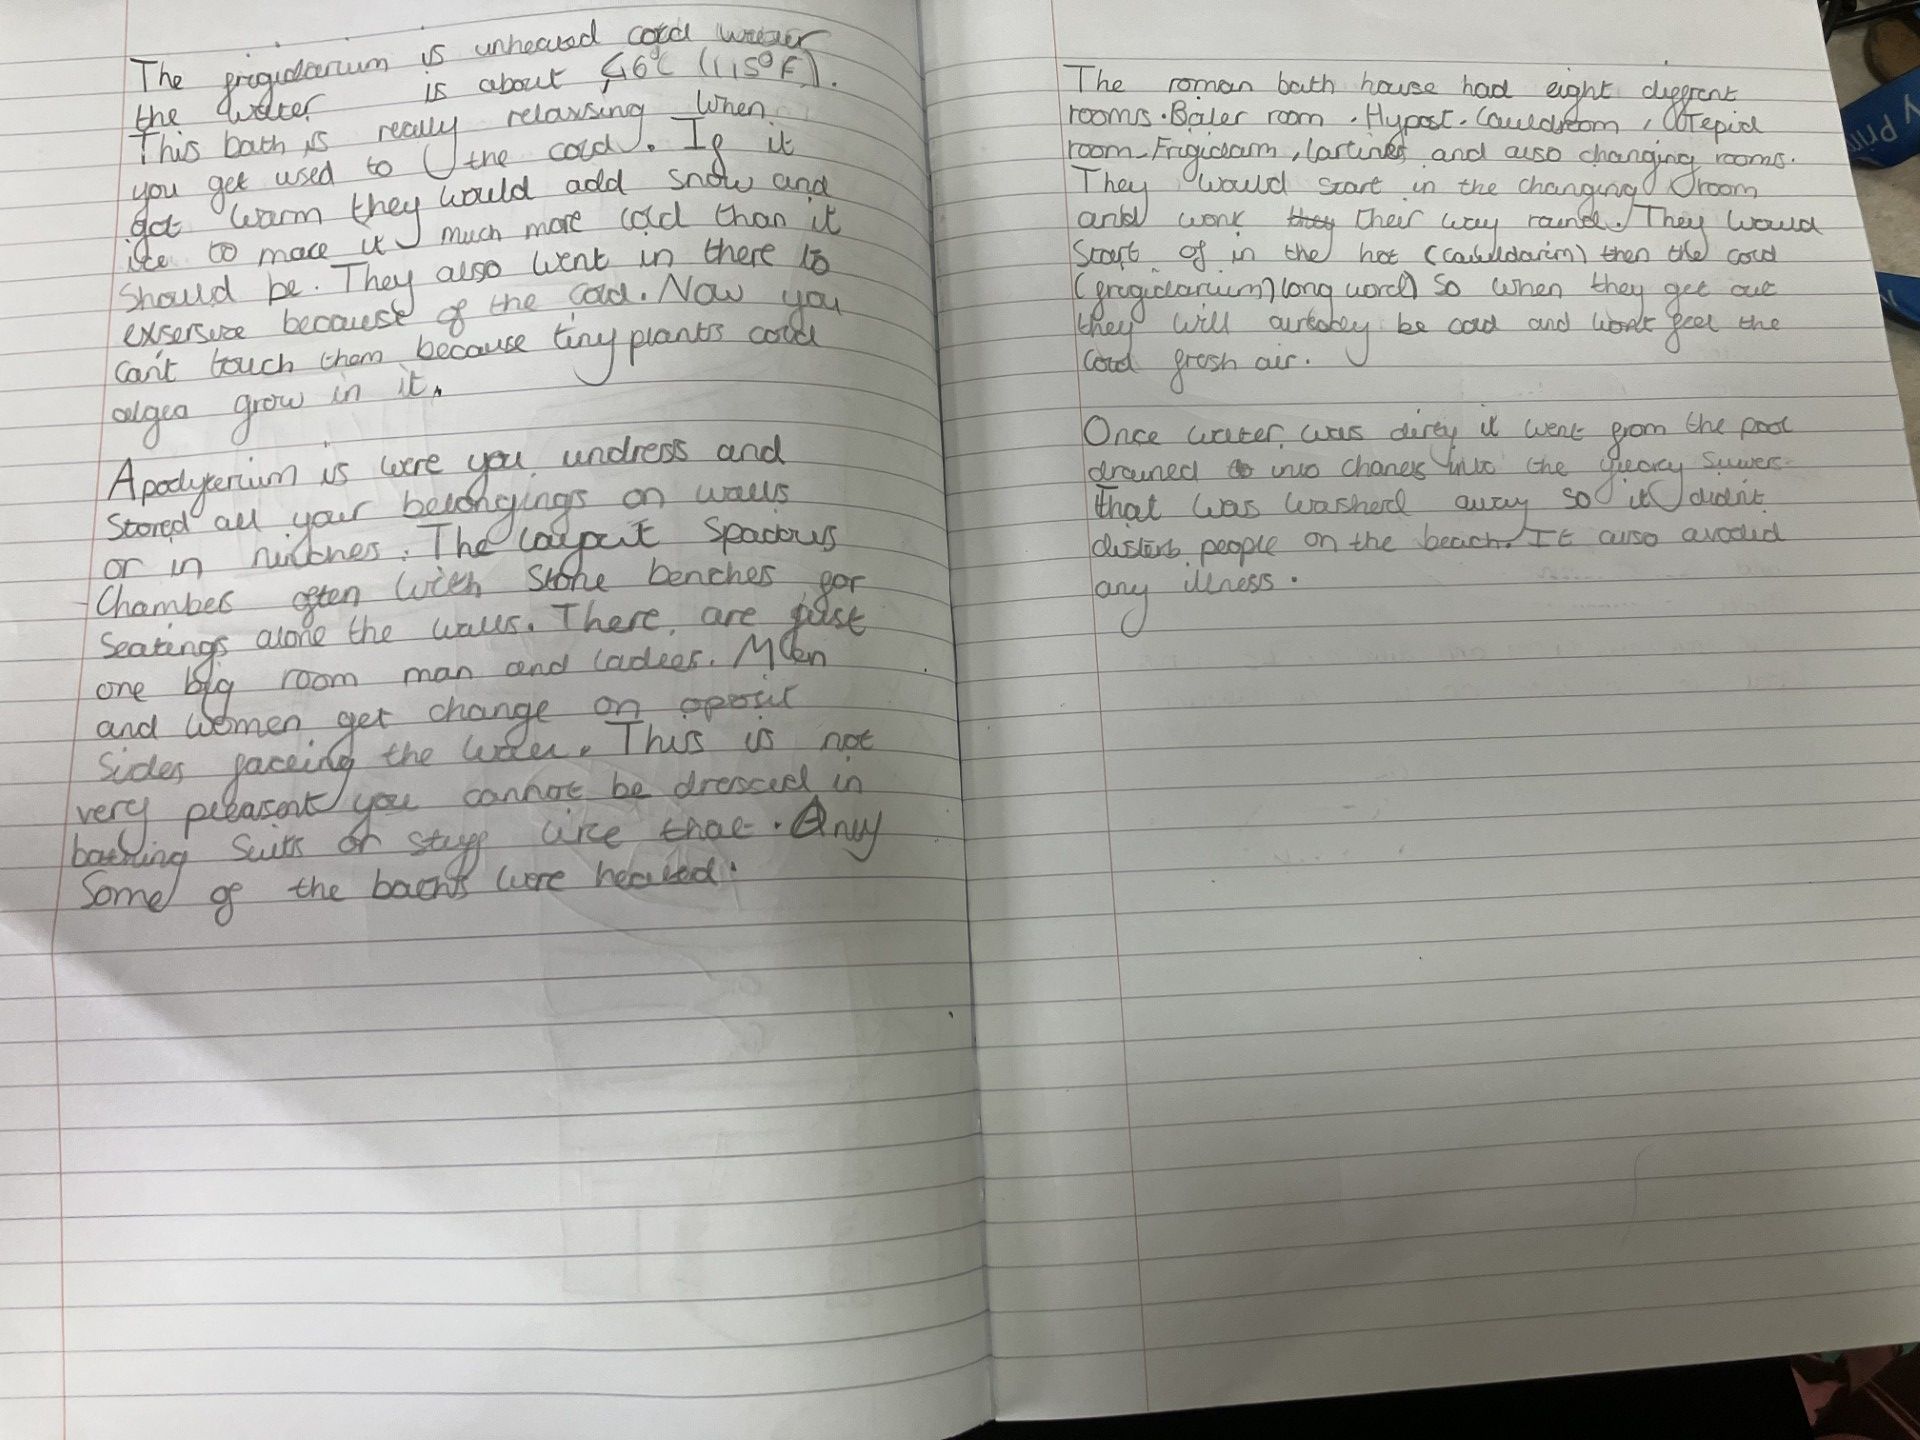 The frigidarium is unheated cold water
the water is about 46°C (115°F).
This bath is really relaxsing when
you get used to the cold. If it
got warm they would add snow and
ice to mace it much more cold than it
should be. They also went in there to
exsersize because of the cold. Now you
can't touch them because tiny plants cald
algea grow in it.
Apodyterium is were you undress and
stored all your belongings on walls
or in nitches. The layout spacious
chambes often with stone benches for
seatings alone the walls. There are just
one big room man and ladies. Men
and women get change on oposit
sides faceing the water. This is not
very pleasent you cannot be dressed in
bathing suits or stuff like that. Only
some of the baths were heated.
The roman bath house had eight diffrent
rooms. Boiler room, Hypost. Cauldroom, Tepid
room, Frigidarm, lartines and also changing rooms.
They would start in the changing room
and work they their way round. They would
start of in the hot (cauldarim) then the cold
(frigidarium) long word) so when they get out
they will alreaby be cold and wont feel the
cold fresh air.
Once water was dirty it went from the pool
drained to into chanels into the sewers
that was washed away so it didn't
disterb people on the beach. It also avoded
any illness.